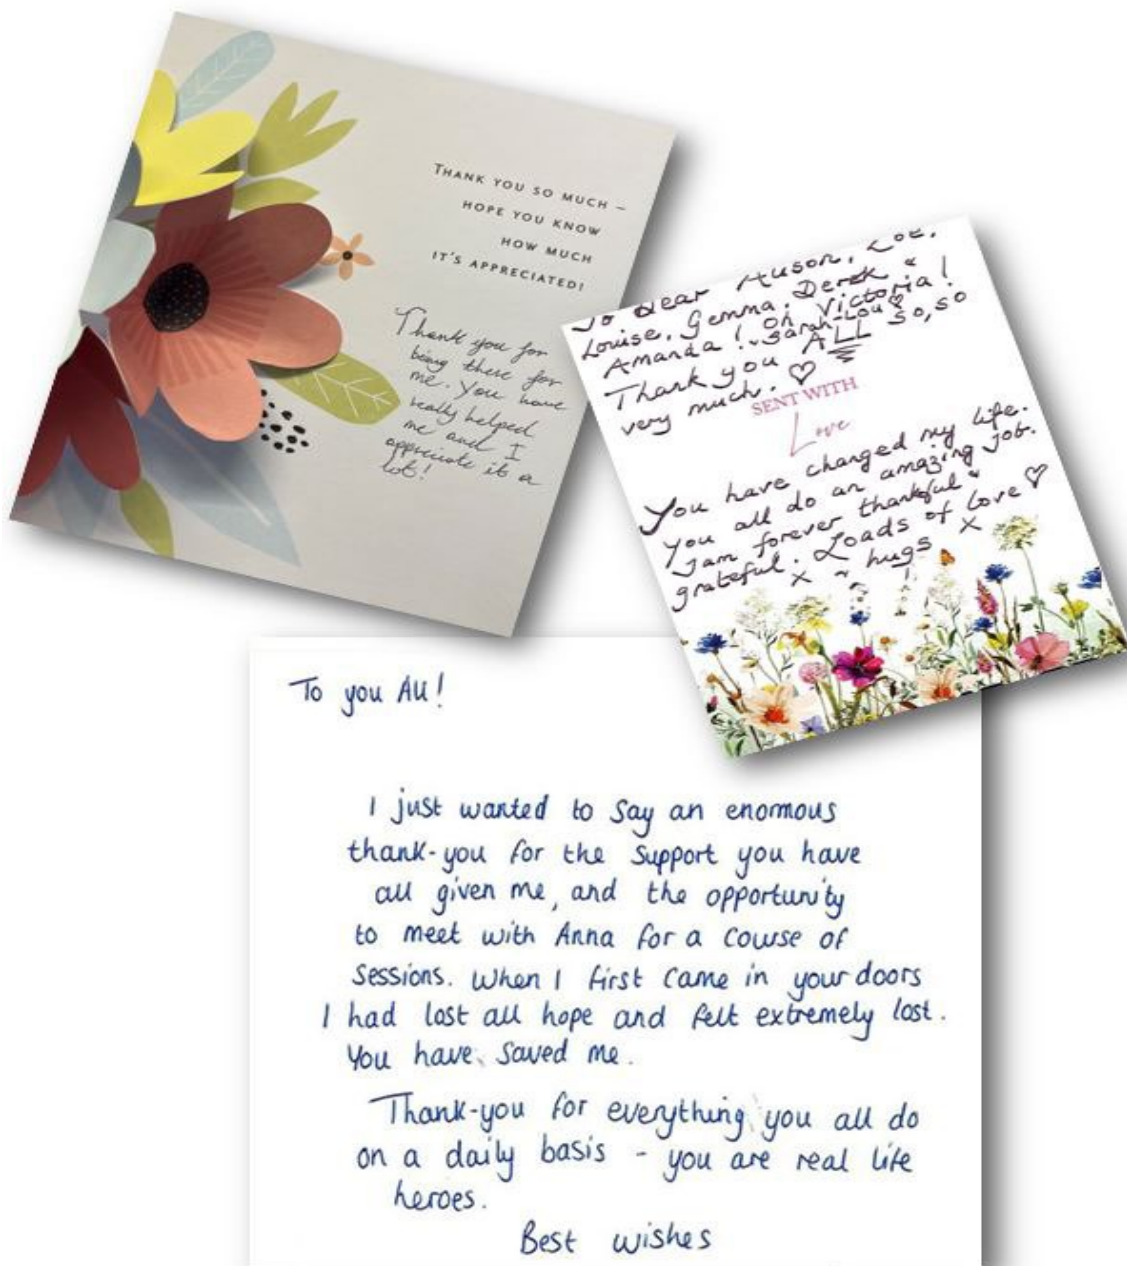 THANK YOU SO MUCH –
HOPE YOU KNOW
HOW MUCH
IT'S APPRECIATED!
Thank you for
being there for
me. You have
really helped
me and I
appreciate it a
lot!
To Dear Alison, Zoe,
Louise, Gemma, Derek &
Amanda! Oh Victoria!
& Sarah-Lou
Thank you ALL so, so
very much. ♡
SENT WITH
Love
You have changed my life.
You all do an amazing job.
I am forever thankful &
grateful. Loads of Love ♡
x & hugs x
To you All!
I just wanted to Say an enormous
thank-you for the Support you have
all given me, and the opportunity
to meet with Anna for a Course of
Sessions. When I first Came in your doors
I had lost all hope and felt extremely lost.
You have Saved me.
Thank-you for everything you all do
on a daily basis - you are real life
heroes.
Best wishes